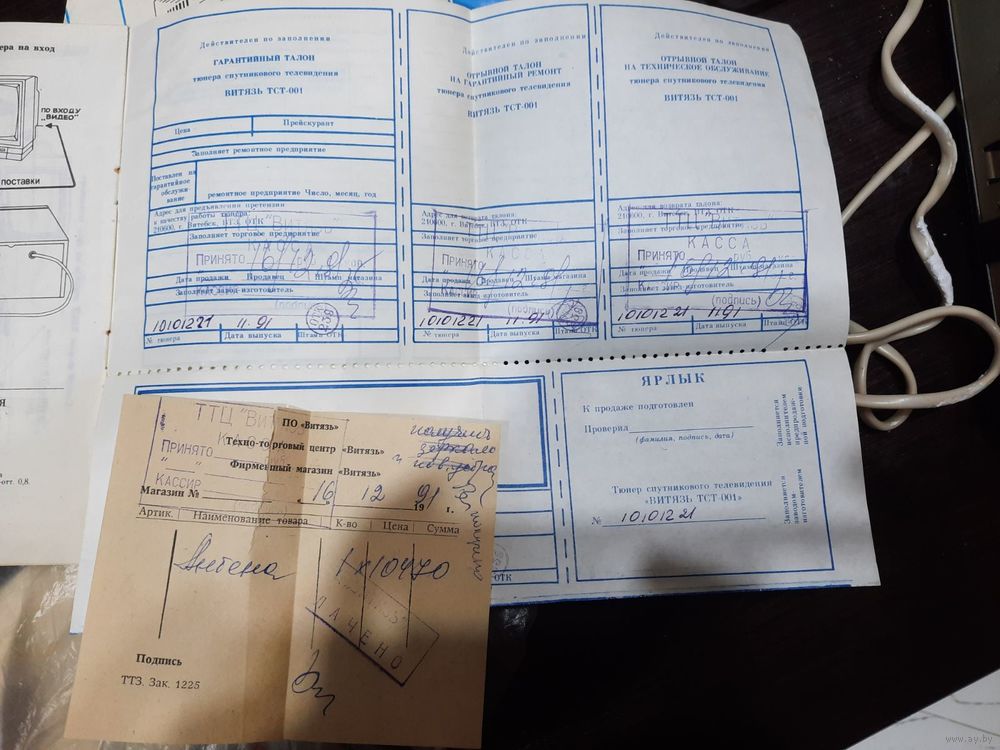 ера на вход
ПО ВХОДУ
„ВИДЕО"
поставки
отт. 0,8.
Действителен по заполнении
ГАРАНТИЙНЫЙ ТАЛОН
тюнера спутникового телевидения
ВИТЯЗЬ ТСТ-001
Цена
Прейскурант
Заполняет ремонтное предприятие
Поставлен на
гарантийное
обслужи-
вание
ремонтное предприятие Число, месяц, год
Адрес для предъявления претензии
к качеству работы тюнера:
210600, г. Витебск, ВТЗ, ОТК
Заполняет торговое предприятие
ПРИНЯТО
Дата продажи Продавец Штамп магазина
Заполняет завод-изготовитель
(подпись)
10101221
11.91
№ тюнера
Дата выпуска
Штамп ОТК
Действителен по заполнении
ОТРЫВНОЙ ТАЛОН
НА ГАРАНТИЙНЫЙ РЕМОНТ
тюнера спутникового телевидения
ВИТЯЗЬ ТСТ-001
Адрес для возврата талона:
210600, г. Витебск, ВТЗ, ОТК
Заполняет торговое предприятие
Принято
Дата продажи Продавец Штамп магазина
Заполняет завод-изготовитель
10101221
11.91
№ тюнера
Дата выпуска
Штамп ОТК
Действителен по заполнении
ОТРЫВНОЙ ТАЛОН
НА ТЕХНИЧЕСКОЕ ОБСЛУЖИВАНИЕ
тюнера спутникового телевидения
ВИТЯЗЬ ТСТ-001
Адрес для возврата талона:
210600, г. Витебск, ВТЗ, ОТК
Заполняет торговое предприятие
КАССА
ПРИНЯТО
Дата продажи Продавец Штамп магазина
Заполняет завод-изготовитель
(подпись)
10101221
11.91
№ тюнера
Дата выпуска
Штамп ОТК
ЯРЛЫК
К продаже подготовлен
Проверил
(фамилия, подпись, дата)
Заполняется
исполнителем
предпродаж-
ной подготовки
Тюнер спутникового телевидения
«ВИТЯЗЬ ТСТ-001»
№ 10101221
Заполняется
заводом-
изготовителем
ОТК
ТТЦ "ВИТЯЗЬ
ПРИНЯТО
КАССИР
ПО «Витязь»
Техно-торговый центр «Витязь»
Фирменный магазин «Витязь»
Магазин №
16 12 1991 г.
Артик.
Наименование товара
К-во
Цена
Сумма
Антена
1 х 10470
ПЛАЧЕНО
Подпись
ТТЗ. Зак. 1225
www.ay.by